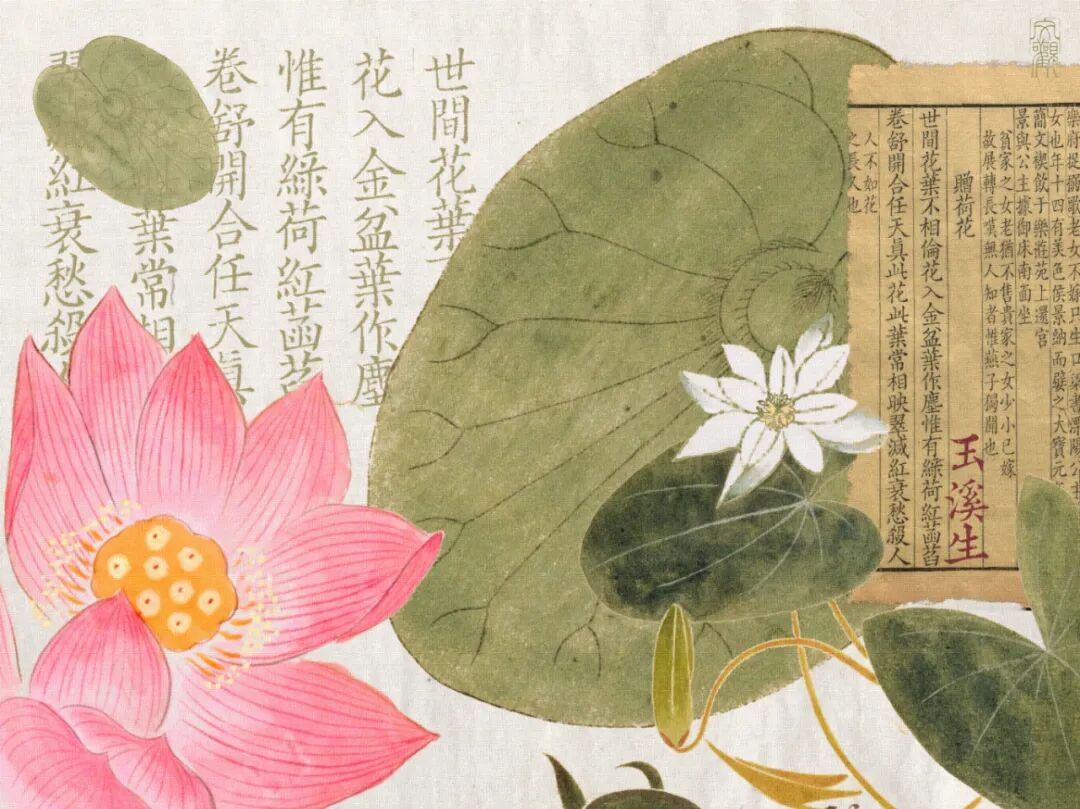 樂府捉搦歌老女不嫁只生口梁書溧陽公主
女也年十四有美色侯景納而嬖之大寶元
簡文禊飲于樂遊苑上還宮
景與公主據御床南面坐
貧家之女老猶不售貴家之女少小已嫁
故展轉長歎無人知者惟燕子獨聞也
贈荷花
玉溪生
世間花葉不相倫花入金盆葉作塵惟有綠荷紅菡萏
卷舒開合任天真此花此葉常相映翠減紅衰愁殺人
人不如花
之長久也
世間花葉
花入金盆葉作塵
惟有綠荷紅菡萏
卷舒開合任天真
葉常相
翠 紅衰愁殺